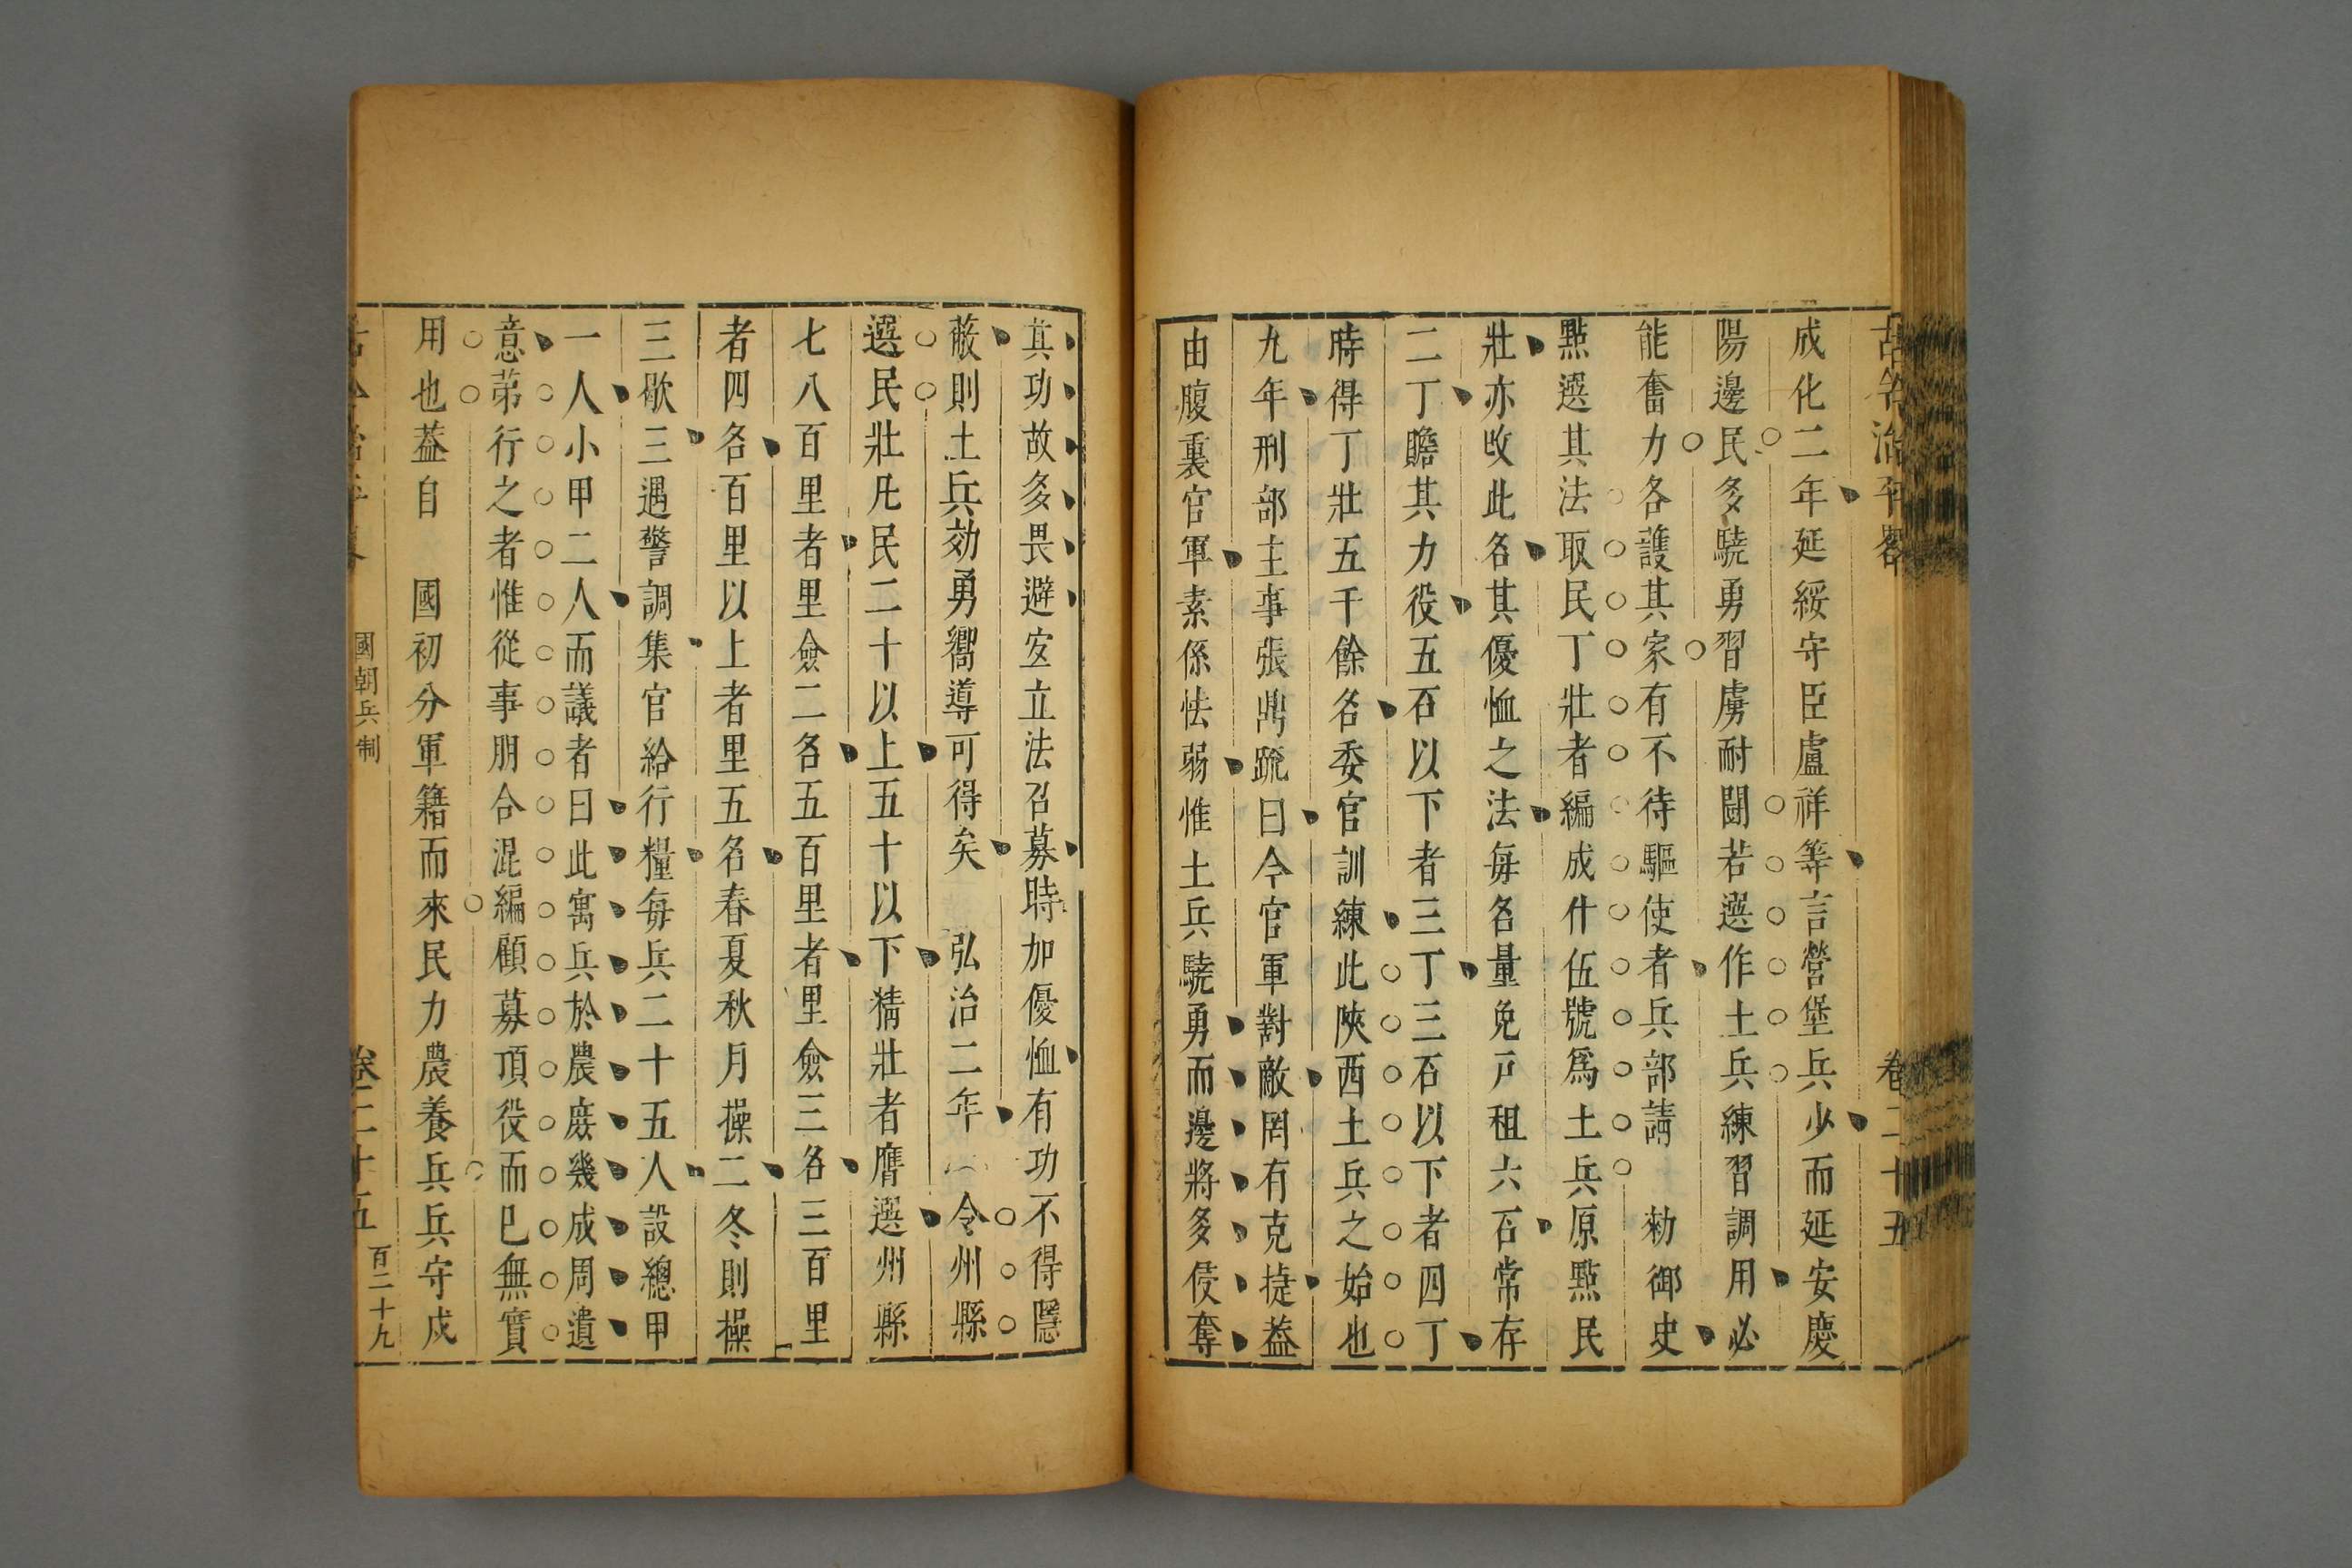 古今治平畧 卷二十五
成化二年延綏守臣盧祥等言營堡兵少而延安慶
陽邊民多驍勇習虜耐鬭若選作土兵練習調用必
能奮力各護其家有不待驅使者兵部請 勑御史
點選其法取民丁壯者編成什伍號爲土兵原點民
壯亦收此名其優恤之法每名量免戸租六石常存
二丁贍其力役五石以下者三丁三石以下者四丁
時得丁壯五千餘名委官訓練此陝西土兵之始也
九年刑部主事張鼎疏曰今官軍對敵罔有克捷葢
由腹裏官軍素係怯弱惟土兵驍勇而邊將多侵奪
其功故多畏避安立法召募時加優恤有功不得隱
蔽則土兵効勇嚮導可得矣 弘治二年 令州縣
選民壯凡民二十以上五十以下猜壯者膺選州縣
七八百里者里僉二名五百里者里僉三名三百里
者四名百里以上者里五名春夏秋月操二冬則操
三歇三遇警調集官給行糧每兵二十五人設總甲
一人小甲二人而議者曰此寓兵於農庶幾成周遺
意苐行之者惟從事朋合混編顧募頂役而已無實
用也葢自 國初分軍籍而來民力農養兵兵守戍
國朝兵制 卷二十五 百二十九